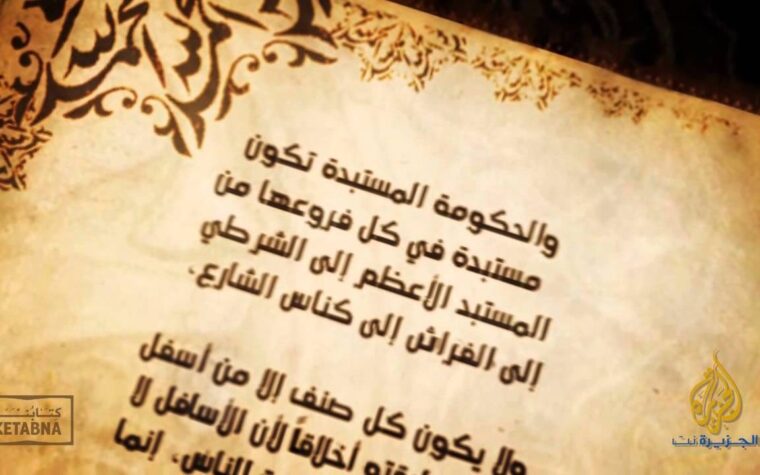 والحكومة المستبدة تكون
مستبدة في كل فروعها من
المستبد الأعظم إلى الشرطي
إلى الفراش إلى كناس الشارع،
ولا يكون كل صنف إلا من أسفل
أخلاقاً لأن الأسافل لا
الناس، إنما
كتابنا
KETABNA
الجزيرة نت